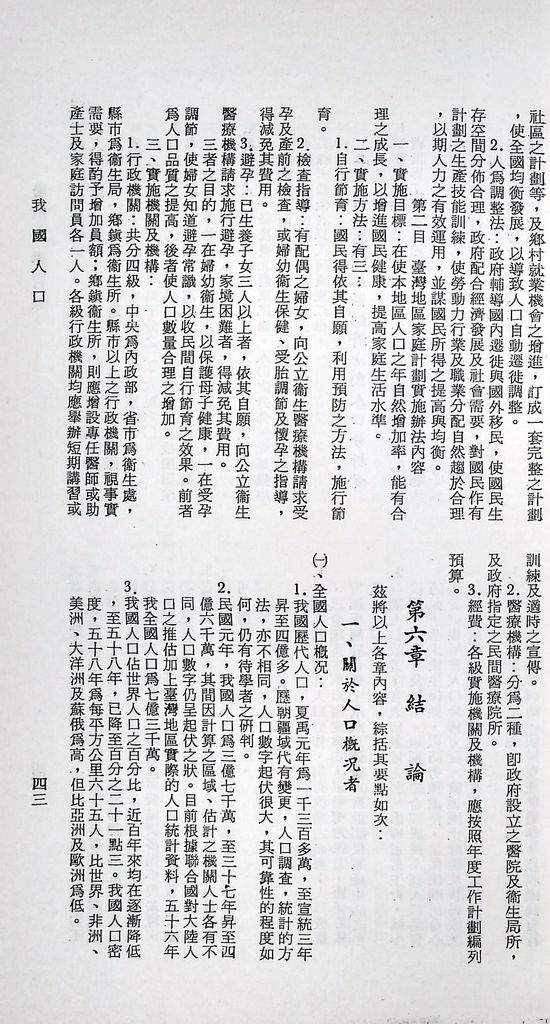 社區之計劃等，及鄉村就業機會之增進，訂成一套完整之計劃
，使全國均衡發展，以導致人口自動遷徙調整。
2.人爲調整法：政府輔導國內遷徙與國外移民，使國民生
存空間分佈合理，政府配合經濟發展及社會需要，對國民作有
計劃之生產技能訓練，使勞動力行業及職業分配自然趨於合理
，以期人力之有效運用，並謀國民所得之提高與均衡。
第二目　臺灣地區家庭計劃實施辦法內容
一、實施目標：在使本地區人口之年自然增加率，能有合
理之成長，以增進國民健康，提高家庭生活水準。
二、實施方法：有三：
1.自行節育：國民得依其自願，利用預防之方法，施行節
育。
2.檢查指導：有配偶之婦女，向公立衞生醫療機構請求受
孕及產前之檢查，或婦幼衞生保健、受胎調節及懷孕之指導，
得減免其費用。
3.避孕：已生養子女三人以上者，依其自願，向公立衞生
醫療機構請求施行避孕，家境困難者，得減免其費用。
三者之目的，一在婦幼衞生，以保護母子健康，一在受孕
調節，使婦女知道避孕常識，以收民間自行節育之效果。前者
爲人口品質之提高，後者使人口數量合理之增加。
三、實施機關及機構：
1.行政機關：共分四級，中央爲內政部，省市爲衞生處，
縣市爲衞生局，鄉鎮爲衞生所。縣市以上之行政機關，視事實
需要，得酌予增加員額；鄉鎮衞生所，則應增設專任醫師或助
產士及家庭訪問員各一人。各級行政機關均應舉辦短期講習或
訓練及適時之宣傳。
2.醫療機構：分爲二種，卽政府設立之醫院及衞生局所，
及政府指定之民間醫療院所。
3.經費：各級實施機關及機構，應按照年度工作計劃編列
預算。
第六章　結　論
茲將以上各章內容，綜括其要點如次：
一、關於人口槪況者
㈠、全國人口槪況：
1.我國歷代人口，夏禹元年爲一千三百多萬，至宣統三年
昇至四億多。歷朝疆域代有變更，人口調查，統計的方
法，亦不相同，人口數字起伏很大，其可靠性的程度如
何，仍有待學者之硏判。
2.民國元年，我國人口爲三億七千萬，至三十七年昇至四
億六千萬，其間因計算之區域、估計之機關人士各有不
同，人口數字仍呈起伏之狀。目前根據聯合國對大陸人
口之推估加上臺灣地區實際的人口統計資料，五十六年
我全國人口爲七億三千萬。
3.我國人口佔世界人口之百分比，近百年來均在逐漸降低
，至五十八年，已降至百分之二十一點三。我國人口密
度，五十八年爲每平方公里六十五人，比世界、非洲、
美洲、大洋洲及蘇俄爲高，但比亞洲及歐洲爲低。
我國人口
四三